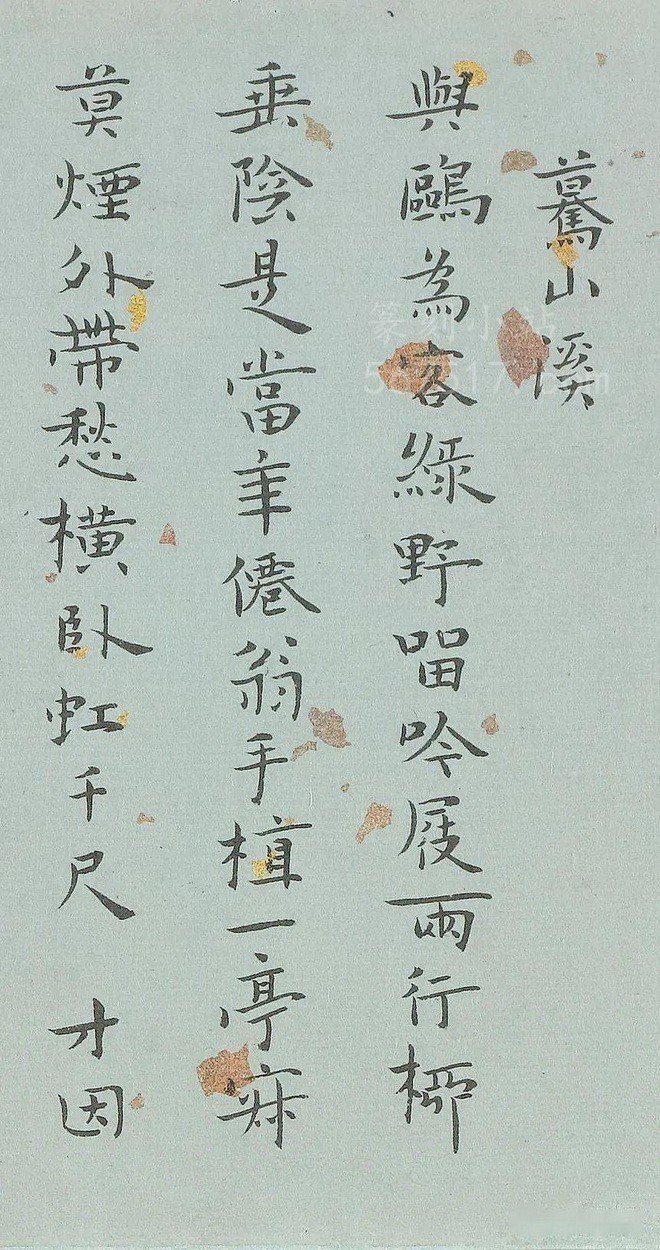 驀山溪
與鷗為客綠野留吟屐兩行柳
垂陰是當年僊翁手植一亭寂
莫煙外帶愁橫臥虹千尺 才因
篆刻小站